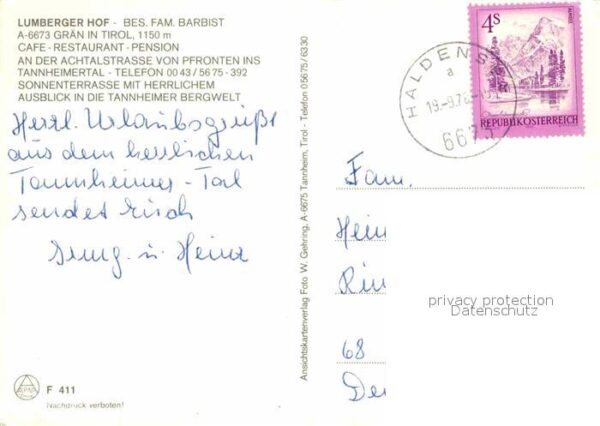 LUMBERGER HOF - BES. FAM. BARBIST
A-6673 GRÄN IN TIROL, 1150 m
CAFE - RESTAURANT - PENSION
AN DER ACHTALSTRASSE VON PFRONTEN INS
TANNHEIMERTAL - TELEFON 00 43 / 56 75 - 392
SONNENTERRASSE MIT HERRLICHEM
AUSBLICK IN DIE TANNHEIMER BERGWELT
Herzl. Urlaubsgrüße
aus dem herrlichen
Tannheimer-Tal
sendet Euch
u. Heinz
F 411
Nachdruck verboten!
Ansichtskartenverlag Foto W. Gehring, A-6675 Tannheim, Tirol - Telefon 05675/6330
4S
REPUBLIK ÖSTERREICH
HALDENS
a
6675
Fam.
Hein
68
privacy protection
Datenschutz